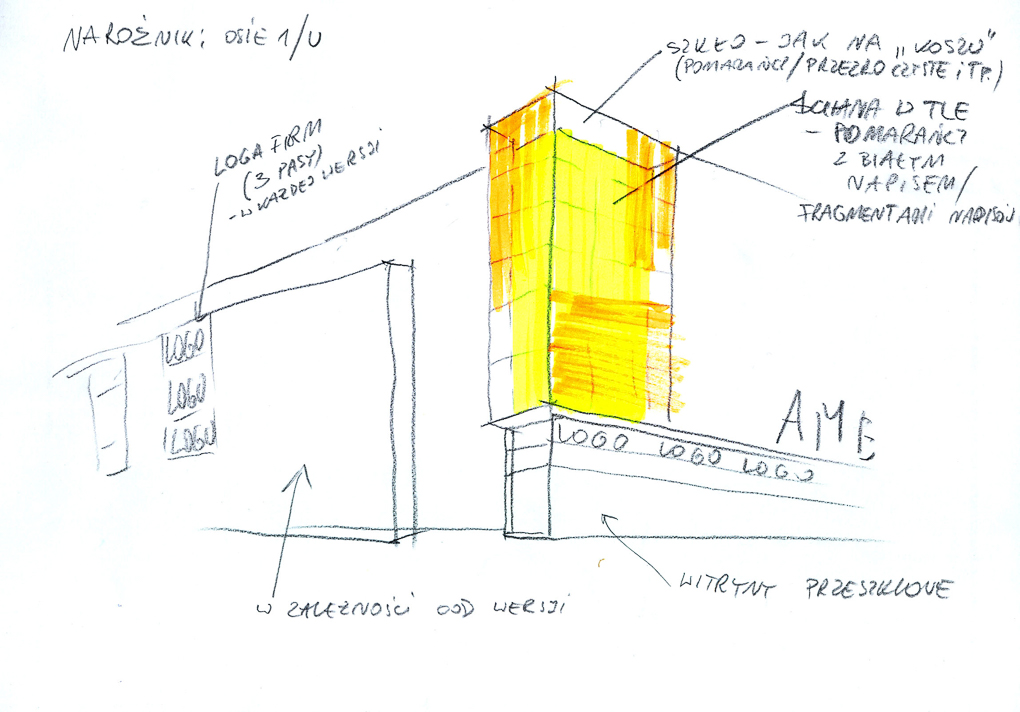 NAROŻNIK: OSIE 1/U
SZKŁO - JAK NA „KOSZU"
(POMARAŃCZ/PRZEZROCZYSTE i TP.)
ŚCIANA W TLE
- POMARAŃCZ
Z BIAŁYM
NAPISEM/
FRAGMENTAMI NAPISÓW
LOGA FIRM
(3 PASY)
- W KAŻDEJ WERSJI
LOGO
LOGO
LOGO
AME
LOGO LOGO LOGO
W ZALEŻNOŚCI OOD WERSJI
WITRYNY PRZESZKLONE